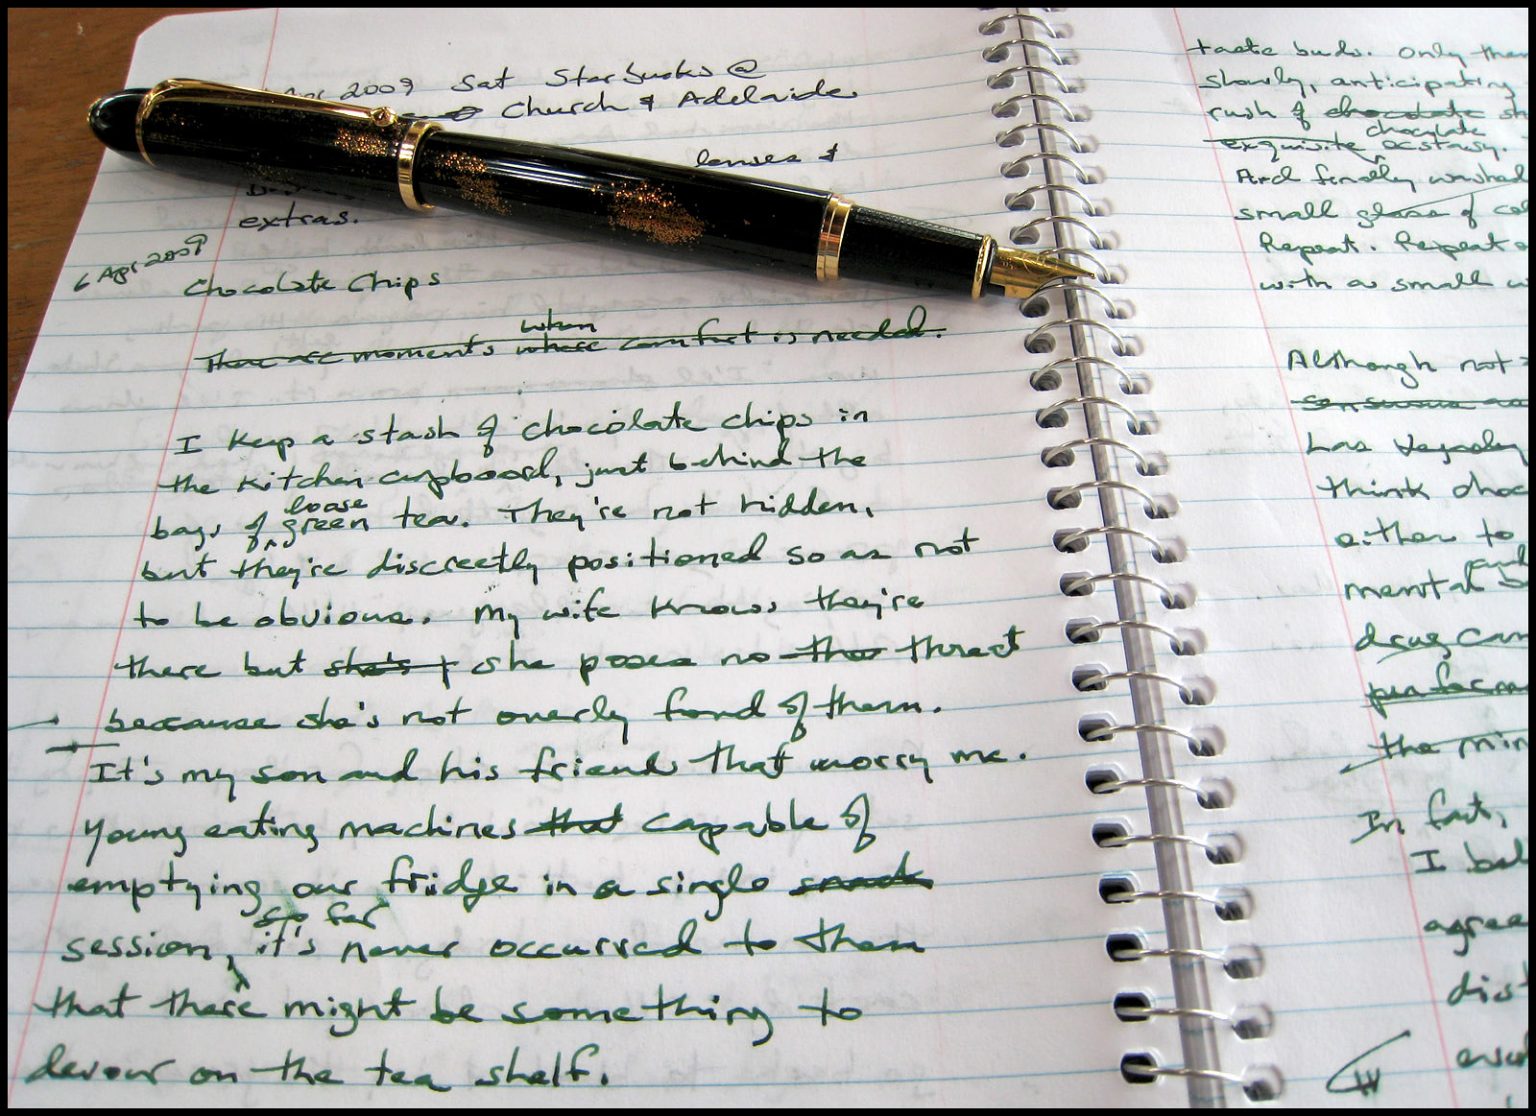 Apr 2009 Sat Starbucks @
Church & Adelaide
lenses &
extras.
6 Apr 2009
Chocolate Chips
when
There are moments where comfort is needed.
I keep a stash of chocolate chips in
the kitchen cupboard, just behind the
loose
bags of green tea. They're not hidden,
but they're discreetly positioned so as not
to be obvious. My wife knows they're
there but she's she poses no threat
because she's not overly fond of them.
It's my son and his friends that worry me.
Young eating machines that capable of
emptying our fridge in a single snack
so far
session, it's never occurred to them
that there might be something to
devour on the tea shelf.
taste buds. Only then
slowly, anticipating
rush of chocolate
chocolate
exquisite ecstasy.
And finally washed
small glass of
Repeat. Repeat
with a small
Although not
sensuous
has
think
either to
and
mental
drug, can
the
In fact,
I
agree